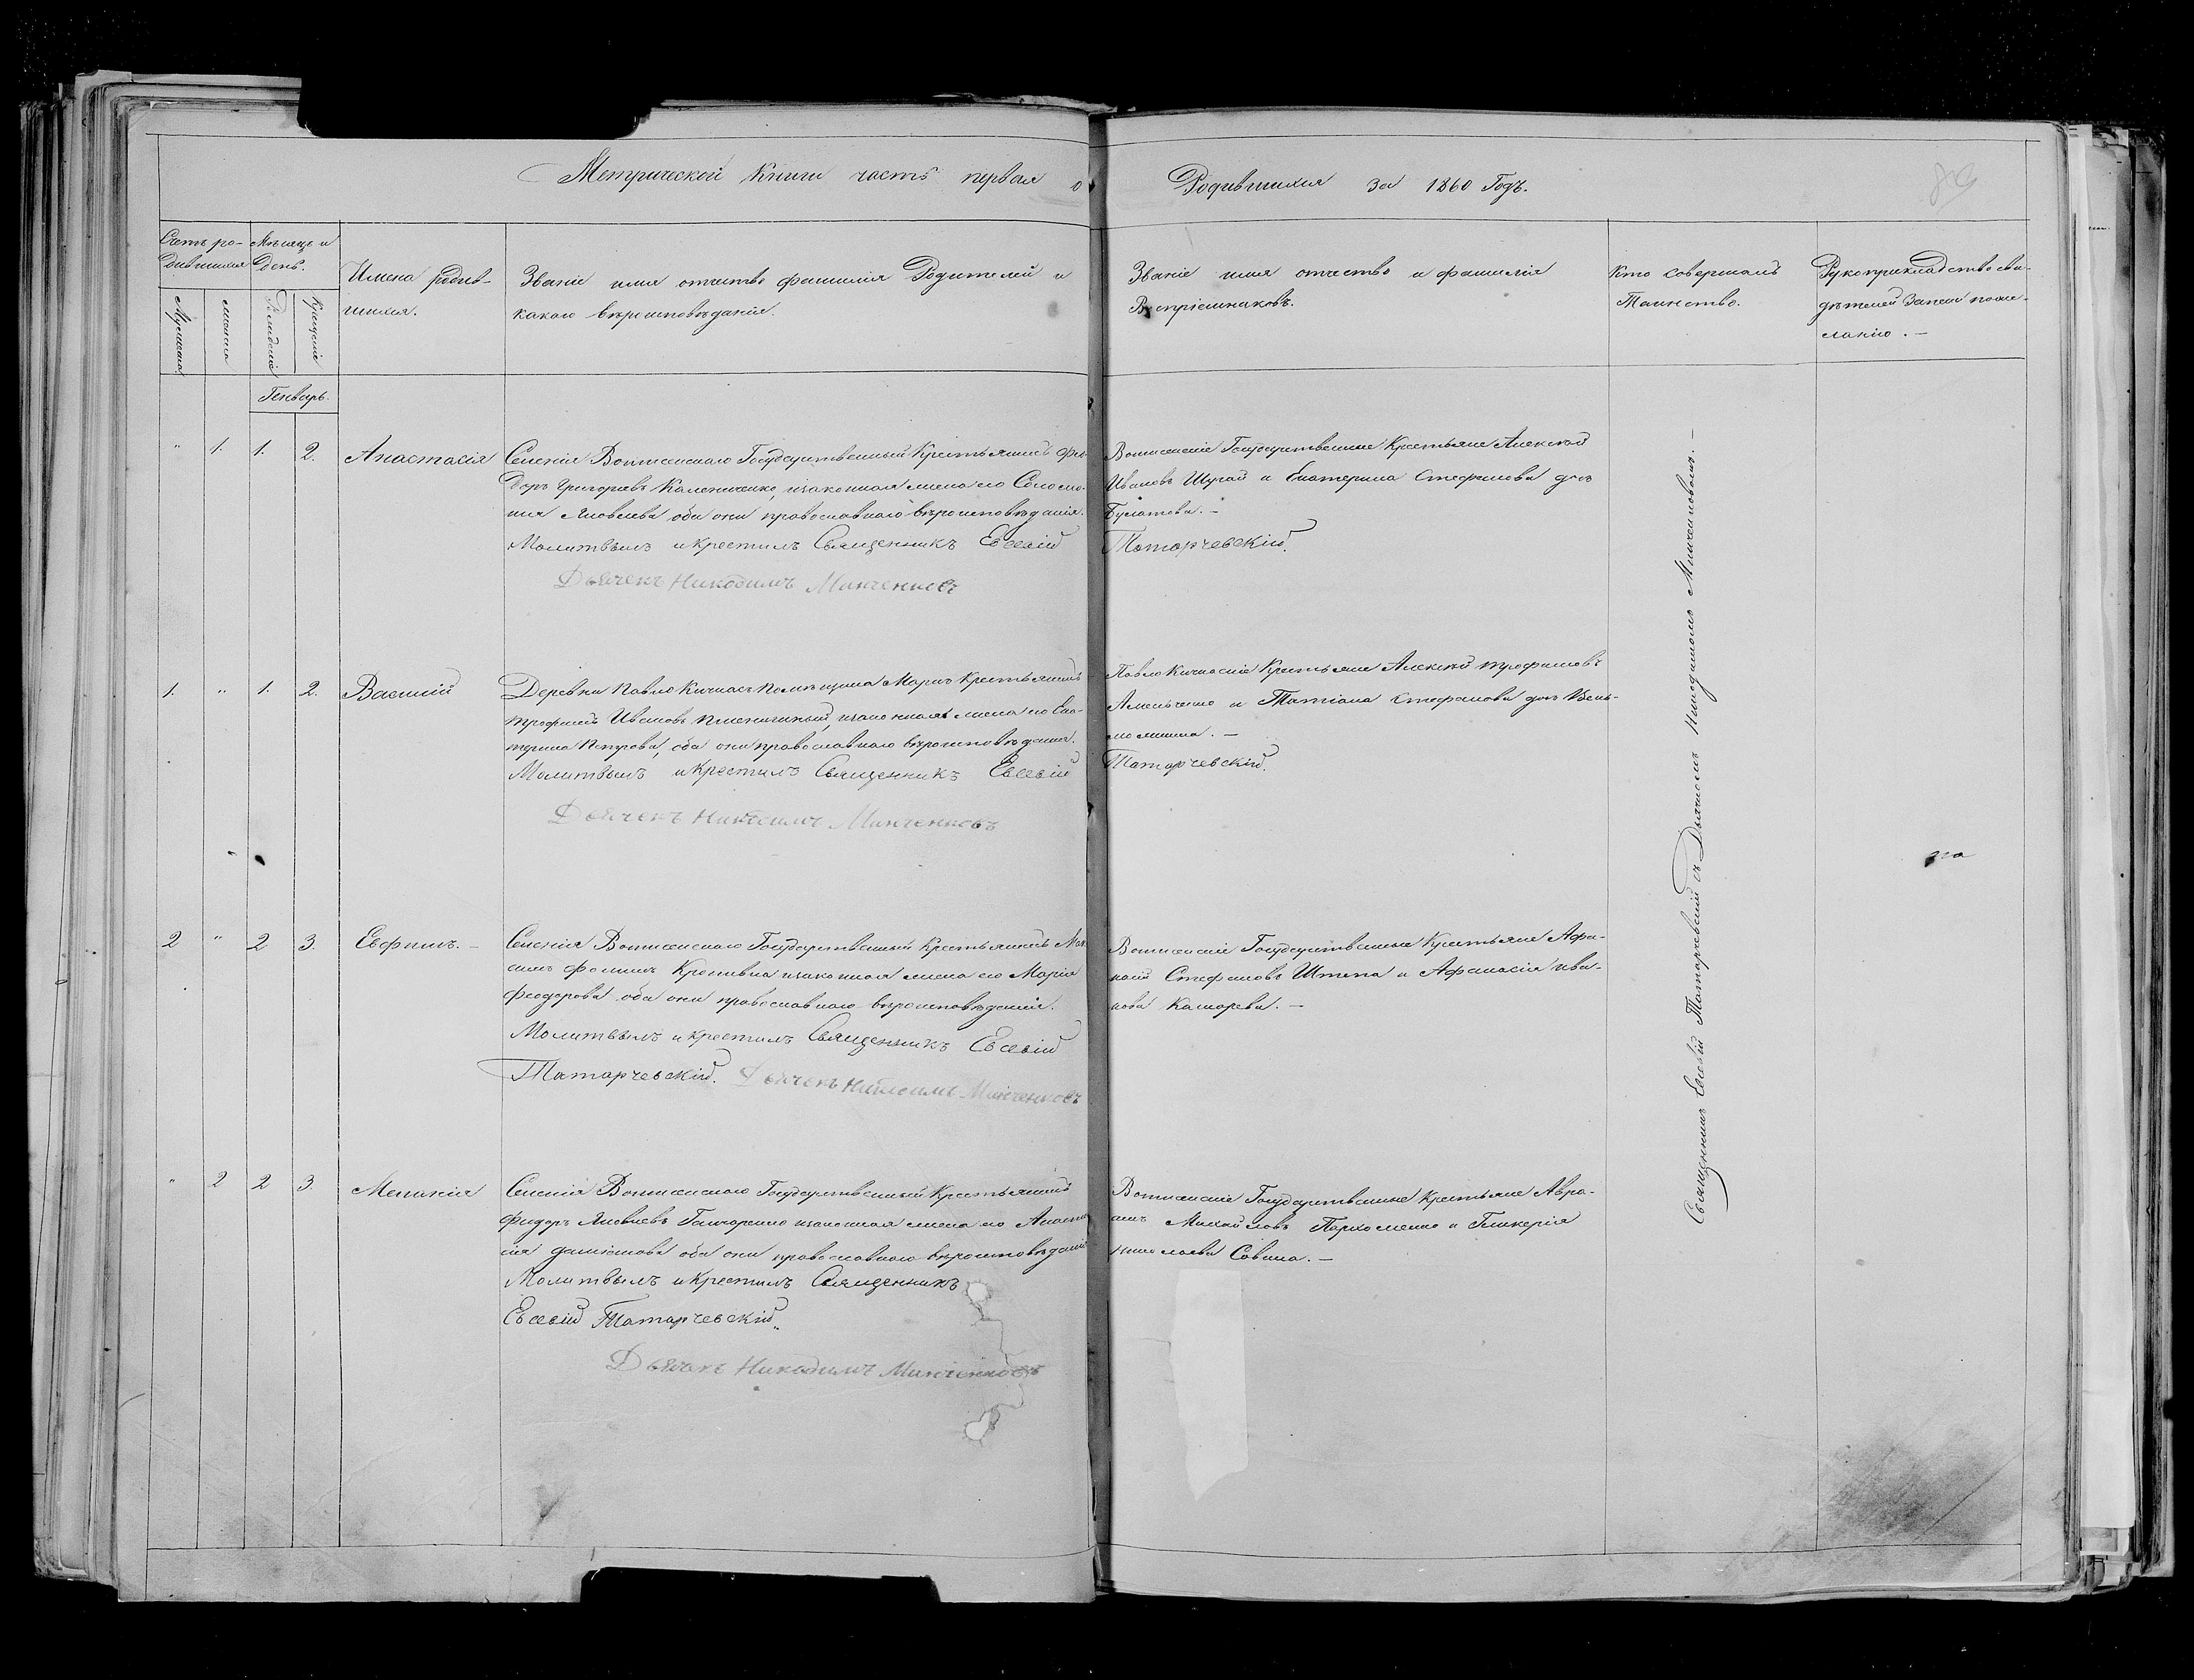 Метрической Книги часть первая о Родившихся за 1860 Годъ.
89
Счетъ ро-
дившихся
Мѣсяцъ и
день.
Мужеска
женска
Рожденія
Крещенія
Имена родив-
шихся.
Званіе имя отчество фамилія Родителей и
какого вѣроисповѣданія.
Званіе имя отчество и фамилія
Воспріемниковъ.
Кто совершалъ
Таинство.
Рукоприкладство сви-
дѣтелей записи по же-
ланію. —
Генварь.
" 1. 1. 2. Анастасія
Селенія Вотисенскаго Государственный Крестьянинъ Фе-
доръ Григорьевъ Калениченко, изаконная жена его Соломо-
нія Яковлева оба они православнаго вѣроисповѣданія.
Молитвылъ и крестилъ Священникъ Евсевій Татарчевскій.
Дьячекъ Никодимъ Минченковъ
Государственные Крестьяне Алексѣй
Ивановъ Шугай и Екатерина Стефанова дочь
Булатова. —
1. " 1. 2. Василій
Деревни Павло Кичкасъ помѣщика Марка Крестьянинъ
Трофимъ Ивановъ Пшеничный, изаконная жена его Ека-
терина Петрова, оба они православнаго вѣроисповѣданія.
Молитвылъ и крестилъ Священникъ Евсевій Татарчевскій.
Дьячекъ Никодимъ Минченковъ
Павло Кичкаскіе Крестьяне Алексѣй Трофимовъ
и Татіана Стефанова дочь
2 " 2 3. Евфимъ. —
Селенія Вотисенскаго Государственный Крестьянинъ Мак-
симъ Фоминъ Кропивка изаконная жена его Марія
Феодорова оба они православнаго вѣроисповѣданія.
Молитвылъ и крестилъ Священникъ Евсевій
Татарчевскій. Дьячекъ Никодимъ Минченковъ
Государственные Крестьяне Афа-
насій Стефановъ Штепа и Афанасія Ива-
нова Кашарева. —
" 2 2 3 Меланія
Селенія Вотисенскаго Государственный Крестьянинъ
Федоръ Яковлевъ Гончаренко изаконная жена его Анаста-
сія оба они православнаго вѣроисповѣданія
Молитвылъ и крестилъ Священникъ
Евсевій Татарчевскій.
Дьячекъ Никодимъ Минченковъ
Государственные Крестьяне Авра-
амъ Михайловъ Пархоменко и Гликерія
Николаева Савина. —
Священникъ Евсевій Татарчевскій съ Дьячкомъ Никодимомъ Минченковымъ. —